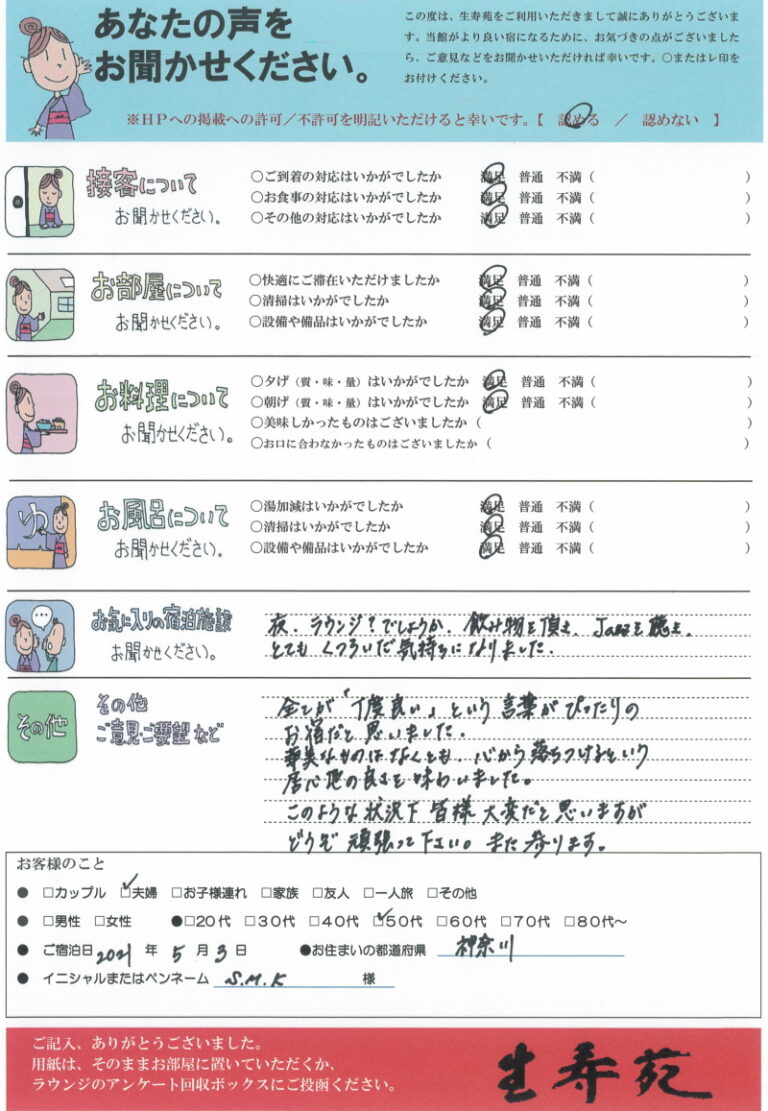 あなたの声を
お聞かせください。
この度は、生寿苑をご利用いただきまして誠にありがとうございま
す。当館がより良い宿になるために、お気づきの点がございました
ら、ご意見などをお聞かせいただければ幸いです。○またはレ印を
お付けください。
※HPへの掲載への許可／不許可を明記いただけると幸いです。【 認める ／ 認めない 】
接客について
お聞かせください。
○ご到着の対応はいかがでしたか 満足 普通 不満（ ）
○お食事の対応はいかがでしたか 満足 普通 不満（ ）
○その他の対応はいかがでしたか 満足 普通 不満（ ）
お部屋について
お聞かせください。
○快適にご滞在いただけましたか 満足 普通 不満（ ）
○清掃はいかがでしたか 満足 普通 不満（ ）
○設備や備品はいかがでしたか 満足 普通 不満（ ）
お料理について
お聞かせください。
○夕げ（質・味・量）はいかがでしたか 満足 普通 不満（ ）
○朝げ（質・味・量）はいかがでしたか 満足 普通 不満（ ）
○美味しかったものはございましたか（ ）
○お口に合わなかったものはございましたか（ ）
ゆ
お風呂について
お聞かせください。
○湯加減はいかがでしたか 満足 普通 不満（ ）
○清掃はいかがでしたか 満足 普通 不満（ ）
○設備や備品はいかがでしたか 満足 普通 不満（ ）
お気に入りの宿泊施設
お聞かせください。
夜、ラウンジ？でしょうか、飲み物を頂き、Jazzを聴き、
とてもくつろいだ気持ちになりました。
その他
その他
ご意見ご要望など
全てが「丁度良い」という言葉がぴったりの
お宿だと思いました。
華美なものはなくとも、心から落ちつけるという
居心地の良さを味わいました。
このような状況下 皆様大変だと思いますが
どうぞ頑張って下さい。また参ります。
お客様のこと
● □カップル □夫婦 □お子様連れ □家族 □友人 □一人旅 □その他
● □男性 □女性 ●□20代 □30代 □40代 □50代 □60代 □70代 □80代～
● ご宿泊日 2021 年 5 月 3 日 ●お住まいの都道府県 神奈川
● イニシャルまたはペンネーム S.M.K 様
ご記入、ありがとうございました。
用紙は、そのままお部屋に置いていただくか、
ラウンジのアンケート回収ボックスにご投函ください。
生寿苑